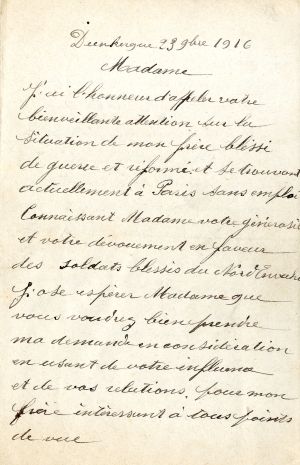 Dunkerque 23 9bre 1916
Madame
J'ai l'honneur d'appeler votre
bienveillante attention sur la
situation de mon frère blessé
de guerre et réformé, et se trouvant
actuellement à Paris sans emploi
Connaissant Madame votre générosité
et votre dévouement en faveur
des soldats blessés du Nord Envahi
J'ose espérer Madame que
vous voudrez bien prendre
ma demande en considération
en usant de votre influence
et de vos relations, pour mon
frère intéressant à tous points
de vue